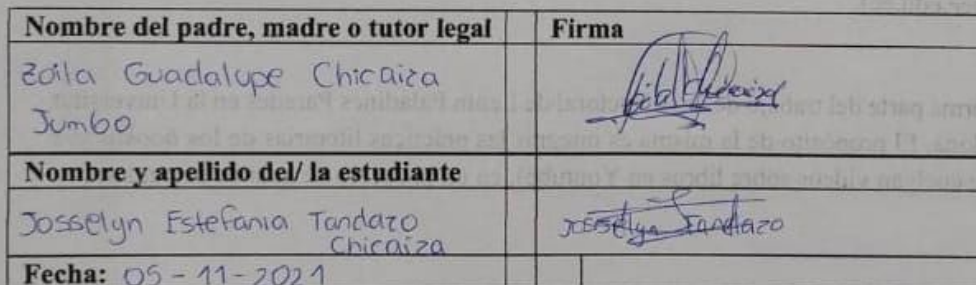 Nombre del padre, madre o tutor legal
Firma
Zoila Guadalupe Chicaiza
Jumbo
Nombre y apellido del/ la estudiante
Josselyn Estefania Tandazo
Chicaiza
Josselyn Tandazo
Fecha: 05-11-2021